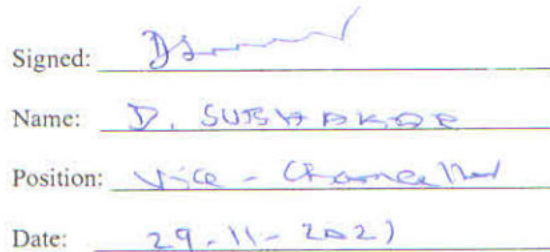 Signed:
Name: D. SUBHAKAR
Position: Vice - Chancellor
Date: 29-11-2021